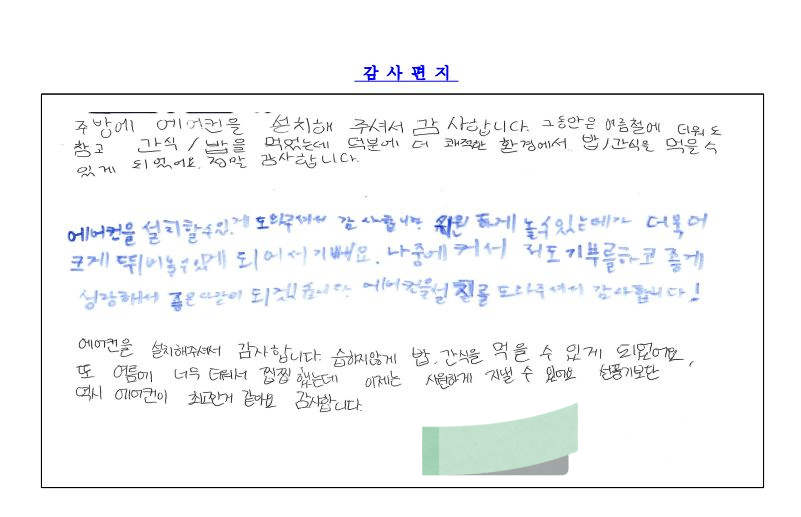 감 사 편 지
주방에 에어컨을 설치해 주셔서 감사합니다. 그동안은 여름철에 더워도
참고 간식/밥을 먹었는데 덕분에 더 쾌적한 환경에서 밥/간식을 먹을 수
있게 되었어요. 정말 감사합니다.
에어컨을 설치할수있게 도와주셔서 감사합니다 시원 하게 놀수있는데가 더욱더
크게 뛰어놀수있게 되어서기뻐요. 나중에커서 저도기부를하고 좋게
성장해서 좋은사람이 되겠습니다. 에어컨을설치를 도와주셔서 감사합니다!
에어컨을 설치해주셔서 감사합니다. 습하지않게 밥, 간식을 먹을 수 있게 되었어요,
또 여름에 너무 더워서 찝찝했는데 이제는 시원하게 지낼 수 있어요 선풍기보단
역시 에어컨이 최고인거 같아요 감사합니다.